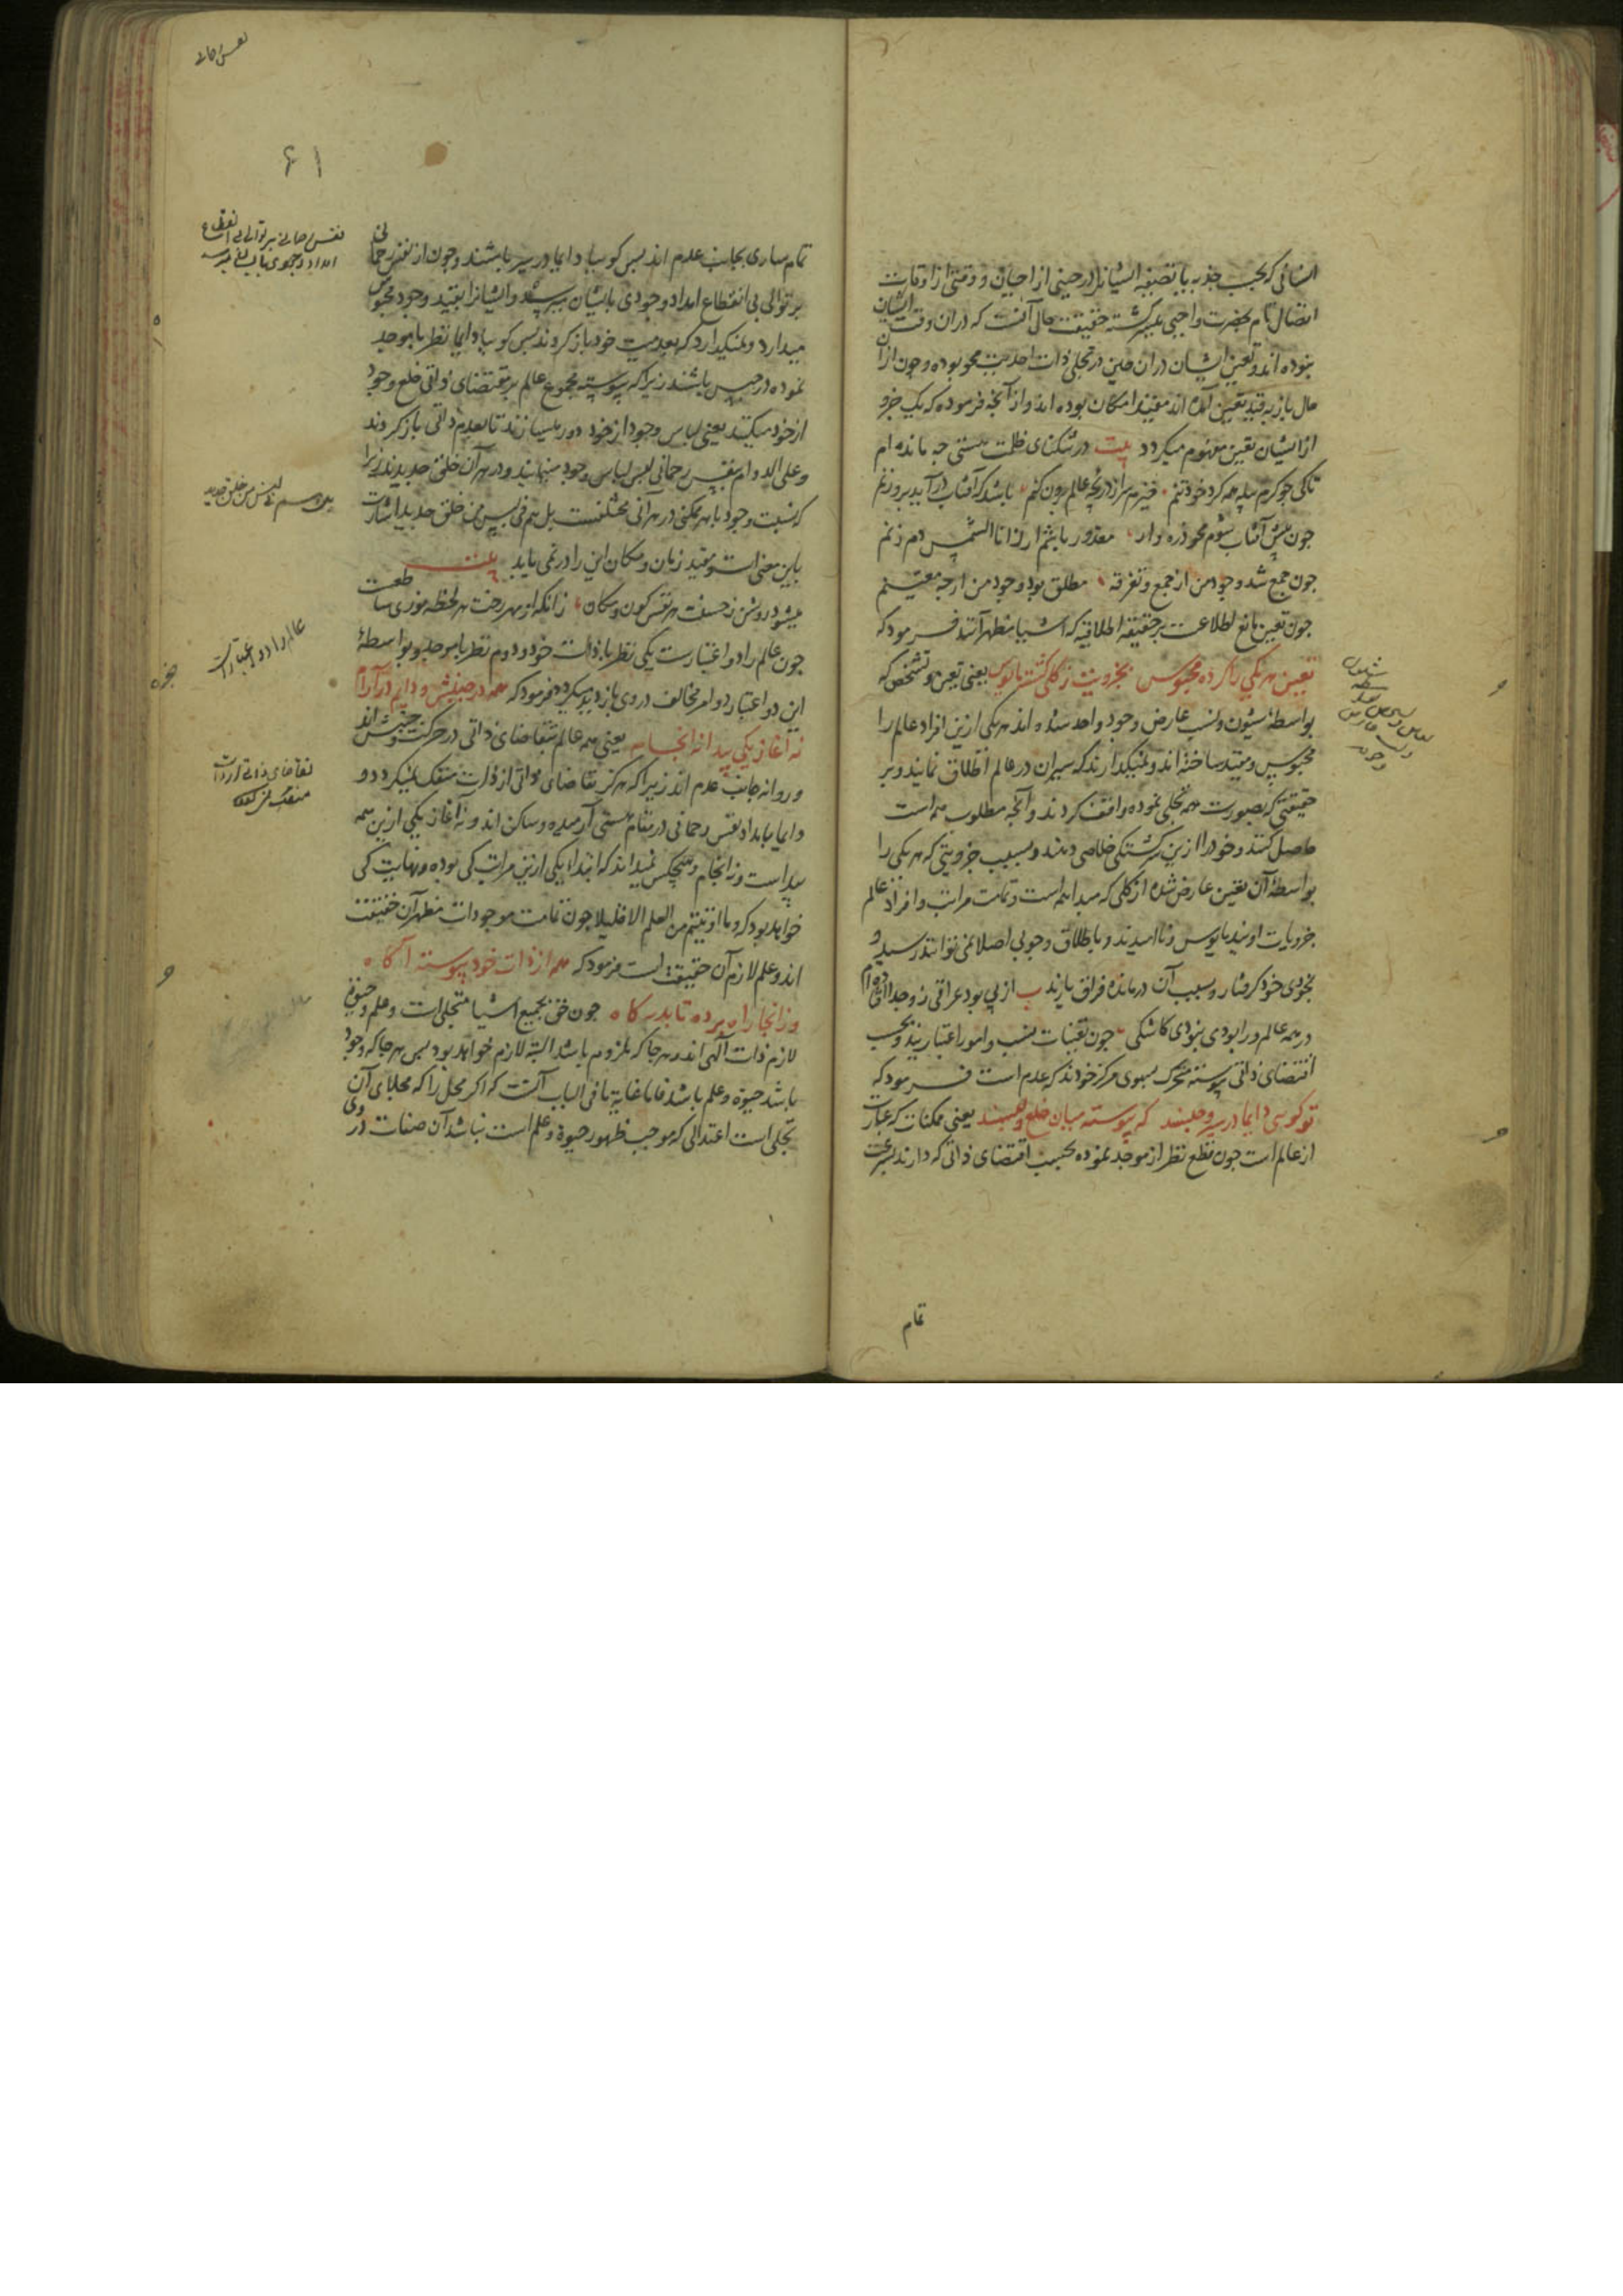 انسانی که بحسب جذبه یا تصفیه ایشانرا در حینی از احیان و وقتی از اوقات
اتصال تام بحضرت واجبی میسر گشته حقیقت حال آنست که در آن وقت ایشان
نبوده اند و تعین ایشان در آن حین در تجلی ذات احدیت محو بوده و چون از آن
حال باز به قید تعین آمده اند مقید امکان بوده اند و از آنچه فرموده که یک جزو
از ایشان تعین مفهوم میکردد بیت در تنکنای ظلمت هستی چه مانده ام
تا کی چو کرم پیله همه کرد خود تنم خیزم سر از دریچه عالم برون کنم باشد که آفتاب در آید بروزنم
چون پیش آفتاب شوم محو ذره وار معذور باشم ار ز انا الشمس دم زنم
چون جمع شد وجود من از جمع و تفرقه مطلق بود وجود من ار چه معینم
چون تعین مانع اطلاعست بر حقیقه اطلاقیه که اشیا مظهر آنند فرمود که
تعین هر یکی را کرده محبوس بجزویت ز کلی کشته مایوس یعنی تعین و تشخص که
بواسطه شیون و نسب عارض وجود واحد شده اند هر یکی ازین افراد عالم را
محبوس و مقید ساخته اند و نمیکذارند که سیران در عالم اطلاق نمایند و بر
حقیقتی که بصورت همه تجلی نموده واقف کردند و آنچه مطلوب همه است
حاصل کنند و خود را ازین سرکشتکی خلاصی دهند و بسبب جزویتی که هر یکی را
بواسطه آن تعین عارض شده از کلی که مبدا همه است و تمامت مراتب و افراد عالم
جزویات اویند مایوس و ناامیدند و باطلاق وجوبی اصلا نمی توانند رسید و
بخودی خود کرفتار و بسبب آن درمانده فراق یارند از پی بود عراقی ز تو جدا افتاده ام
در همه عالم مرا بودی نبودی کاشکی چون تعینات نسب و امور اعتباریند و بحسب
اقتضای ذاتی پیوسته متحرک بسوی مرکز خودند که عدم است فرمود که
تو کوئی دایما در سیر و حبسند که پیوسته میان خلع و لبسند یعنی ممکنات که عبارت
از عالم است چون قطع نظر از موجد نموده بحسب اقتضای ذاتی که دارند بسرعت
تمام
۶۱
تمام ساری بجانب عدم اند پس کوییا دایما در سیر باشند و چون از نفس رحمانی
بر توالی بی انقطاع امداد وجودی بایشان میرسد و ایشانرا بقید وجود محبوس
میدارد و نمیکذارد که بعدمیت خود باز کردند پس کوییا دایما نظر با موجد
نموده در حبس باشند زیرا که پیوسته مجموع عالم بر مقتضای ذاتی خلع وجود
از خود میکنند یعنی لباس وجود از خود دور میسازند تا بعدم ذاتی باز کردند
و علی الدوام بنفس رحمانی لبس لباس وجود مینمایند و در هر آن خلق جدیدند زیرا
که نسبت وجود با هر ممکنی در هر آنی مختلفست بل هم فی لبس من خلق جدید اشارت
باین معنی است و مقید زمان و مکان این را در نمی یابد بیت
میشود روشن ز حسنت هر نفس کون و مکان زانکه از مهر رخت هر لحظه نوری ساطعست
چون عالم را دو اعتبارست یکی نظر با ذات خود و دوم نظر با موجد و بواسطه
این دو اعتبار دو امر مخالف در وی بازدید میکردد فرمود که همه در جنبش و دایم در آرام
نه آغاز یکی پیدا نه انجام یعنی همه عالم بتقاضای ذاتی در حرکت و جنبش اند
و روانه جانب عدم اند زیرا که هرکز تقاضای ذاتی از ذات منفک نمیکردد و
دایما بامداد نفس رحمانی در مقام هستی آرمیده و ساکن اند و نه آغاز یکی ازین همه
پیداست و نه انجام و هیچکس نمیداند که ابتداء یکی ازین مراتب کی بوده و نهایت کی
خواهد بود که و ما اوتیتم من العلم الا قلیلا چون تمامت موجودات مظهر آن حقیقت
اند و علم لازم آن حقیقت است فرمود که همه از ذات خود پیوسته آکاه
وز آنجا راه برده تا بدرکاه چون حق بجمیع اشیا متجلی است و علم و حیوة
لازم ذات آلهی اند هر جا که ملزوم باشد البته لازم خواهد بود پس هر جا که وجود
باشد حیوة و علم باشد فاما غایة ما فی الباب آنست که اکر محل را که مجلای آن
تجلی است اعتدالی که موجب ظهور حیوة و علم است نباشد آن صفات در وی
نفس رحمانی بر توالی بی انقطاع
امداد وجودی بایشان میرسد
بل هم فی لبس من خلق جدید
عالم را دو اعتبار است
تقاضای ذاتی از ذات
منفک نمیکردد